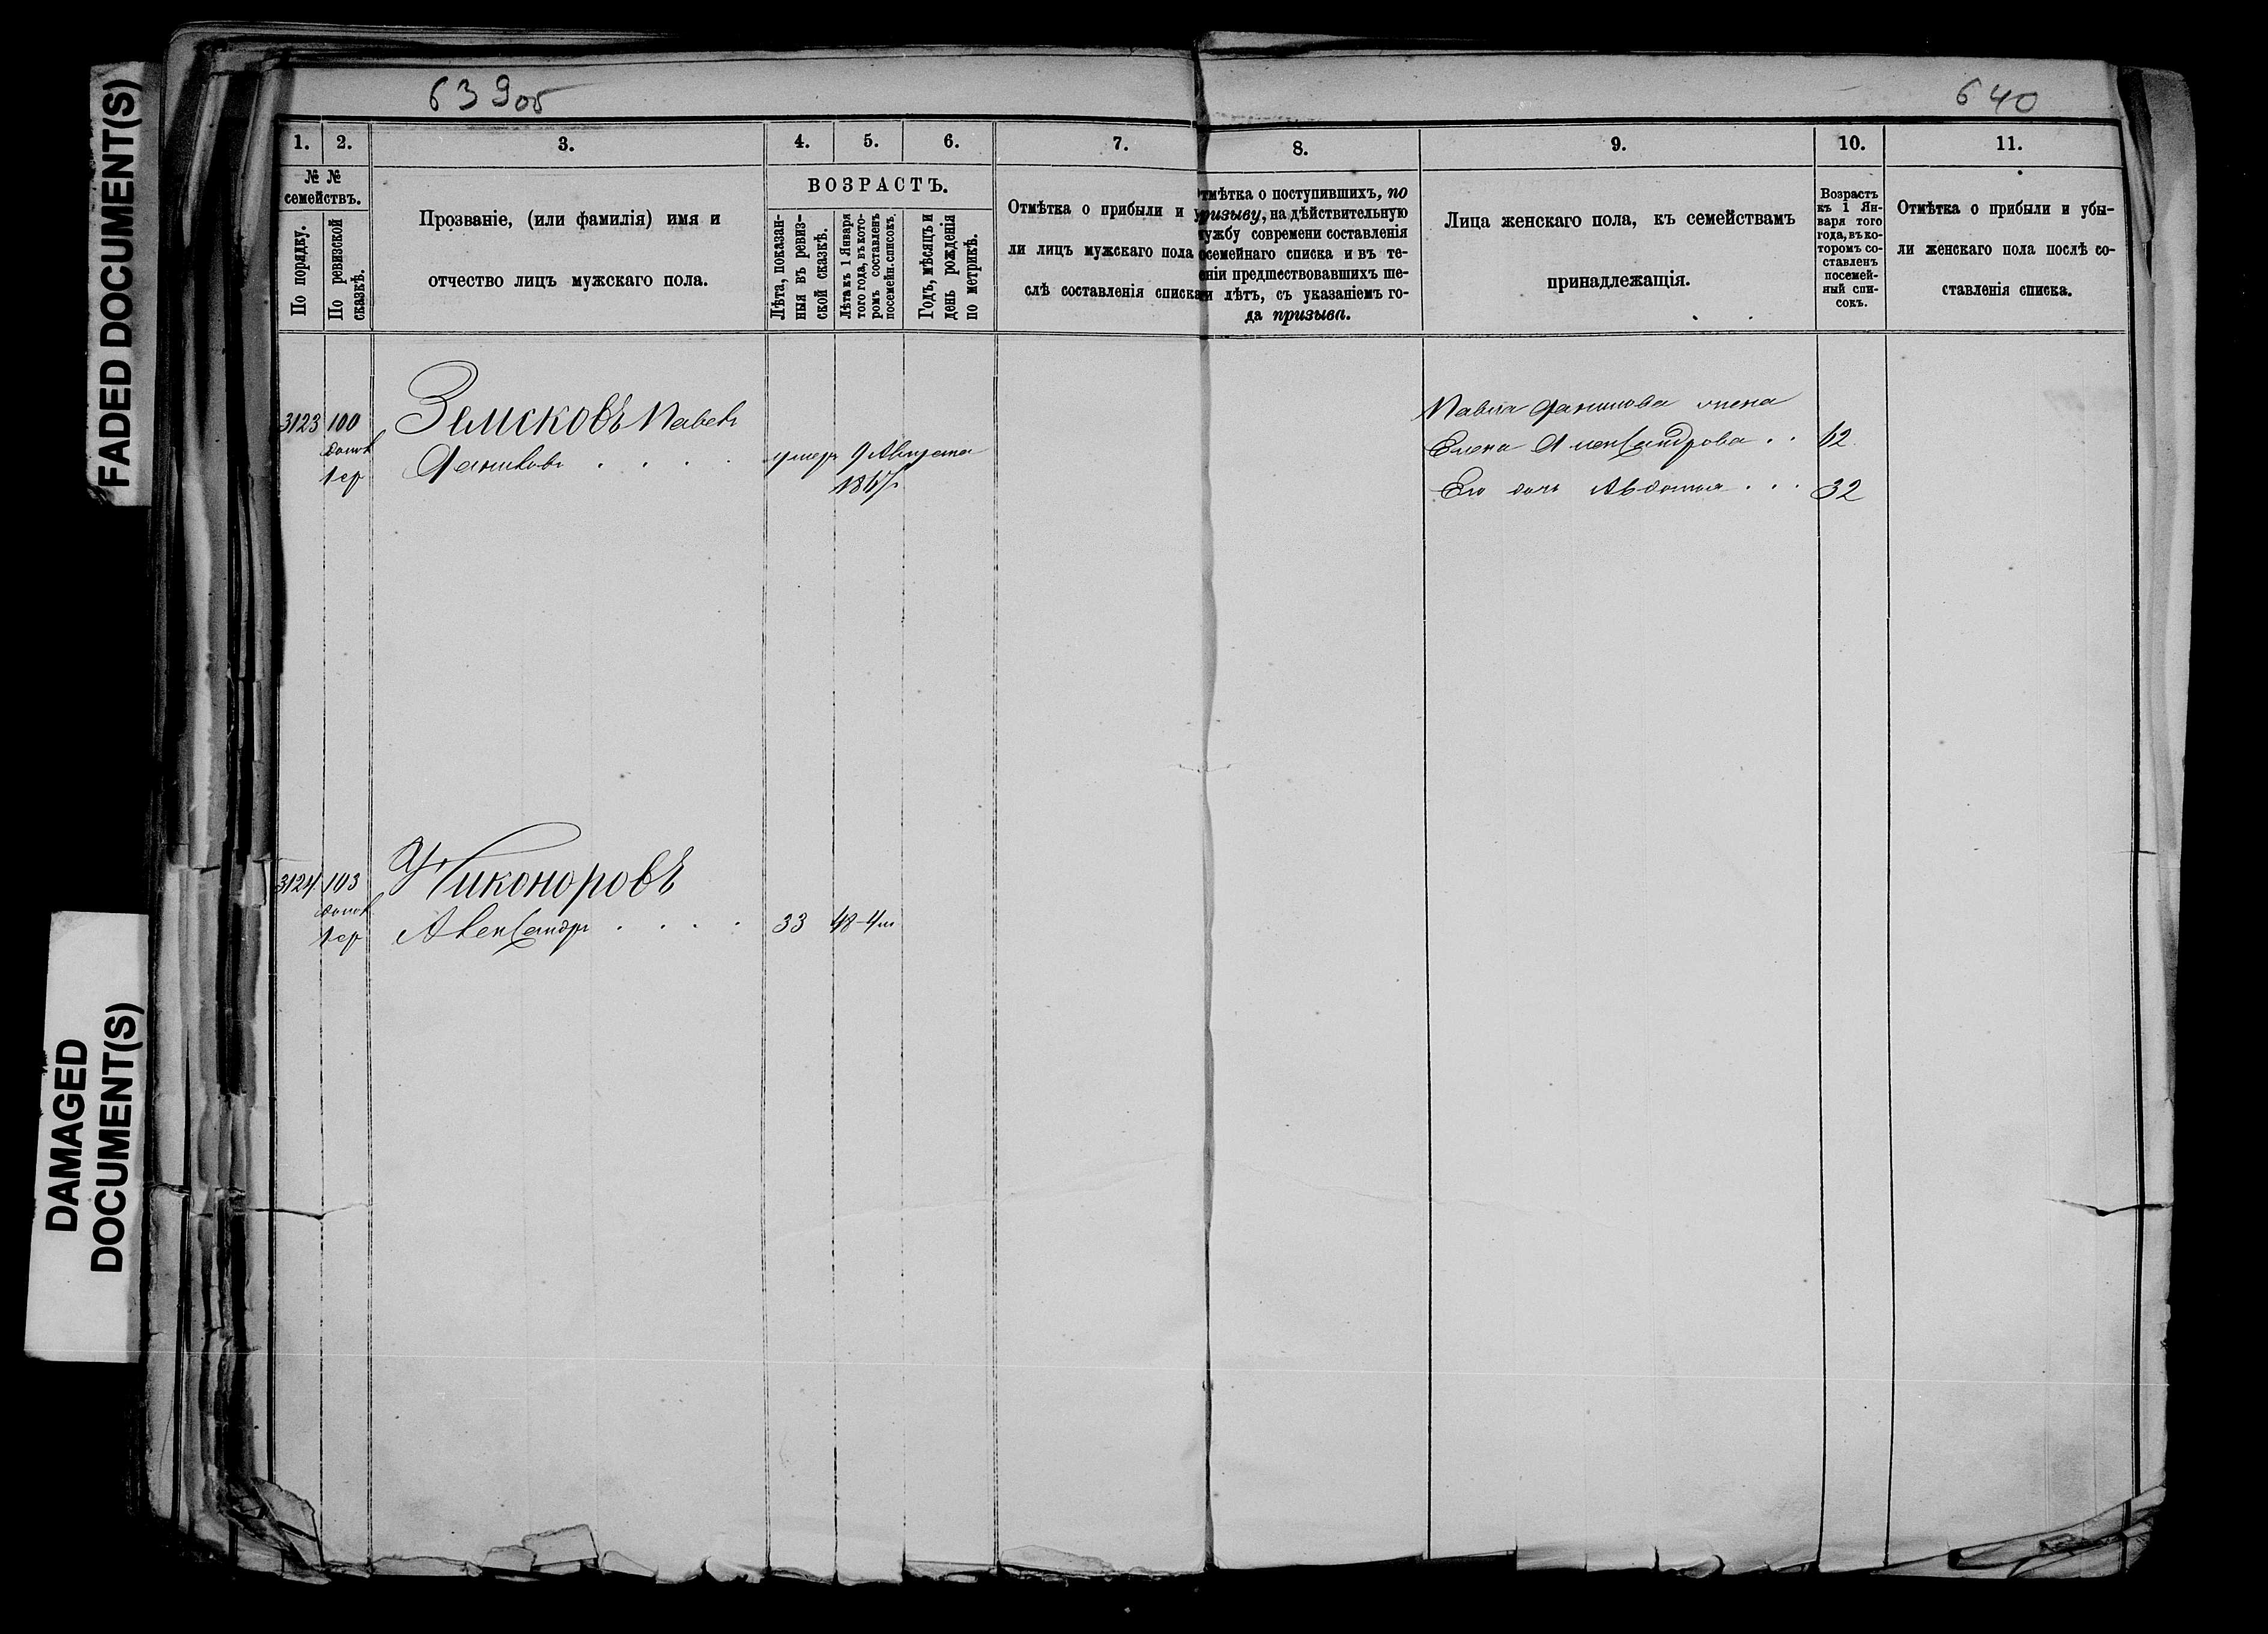 FADED DOCUMENT(S)
DAMAGED
DOCUMENT(S)
639об
640
1.
2.
3.
4.
5.
6.
7.
8.
9.
10.
11.
№ №
семействъ.
По порядку.
По ревизской
сказкѣ.
Прозваніе, (или фамилія) имя и
отчество лицъ мужскаго пола.
ВОЗРАСТЪ.
Лѣта, показан-
ныя въ ревиз-
ской сказкѣ.
Лѣта къ 1 Января
того года, въ кото-
ромъ составленъ
посемейн. списокъ.
Годъ, мѣсяцъ и
день рожденія
по метрикѣ.
Отмѣтка о прибыли и у
ли лицъ мужскаго пола
слѣ составленія списка
тмѣтка о поступившихъ, по
призыву, на дѣйствительную
ужбу современи составленія
осемейнаго списка и въ те-
еніи предшествовавшихъ ше-
и лѣтъ, съ указаніемъ го-
да призыва.
Лица женскаго пола, къ семействамъ
принадлежащія.
Возрастъ
къ 1 Ян-
варя того
года, въ ко-
торомъ со-
ставленъ
посемей-
ный спи-
сокъ.
Отмѣтка о прибыли и убы-
ли женскаго пола послѣ со-
ставленія списка.
3123 100 Земсковъ Павелъ
допол
1 ср
Даниловъ . . . . умеръ 9 Августа
186
Павла Данилова жена
Елена Александрова . . 62
Его дочь Авдотья . . . 32
3124 103 Никоноровъ
допол
1 ср
Александръ . . . . 33 48-4м